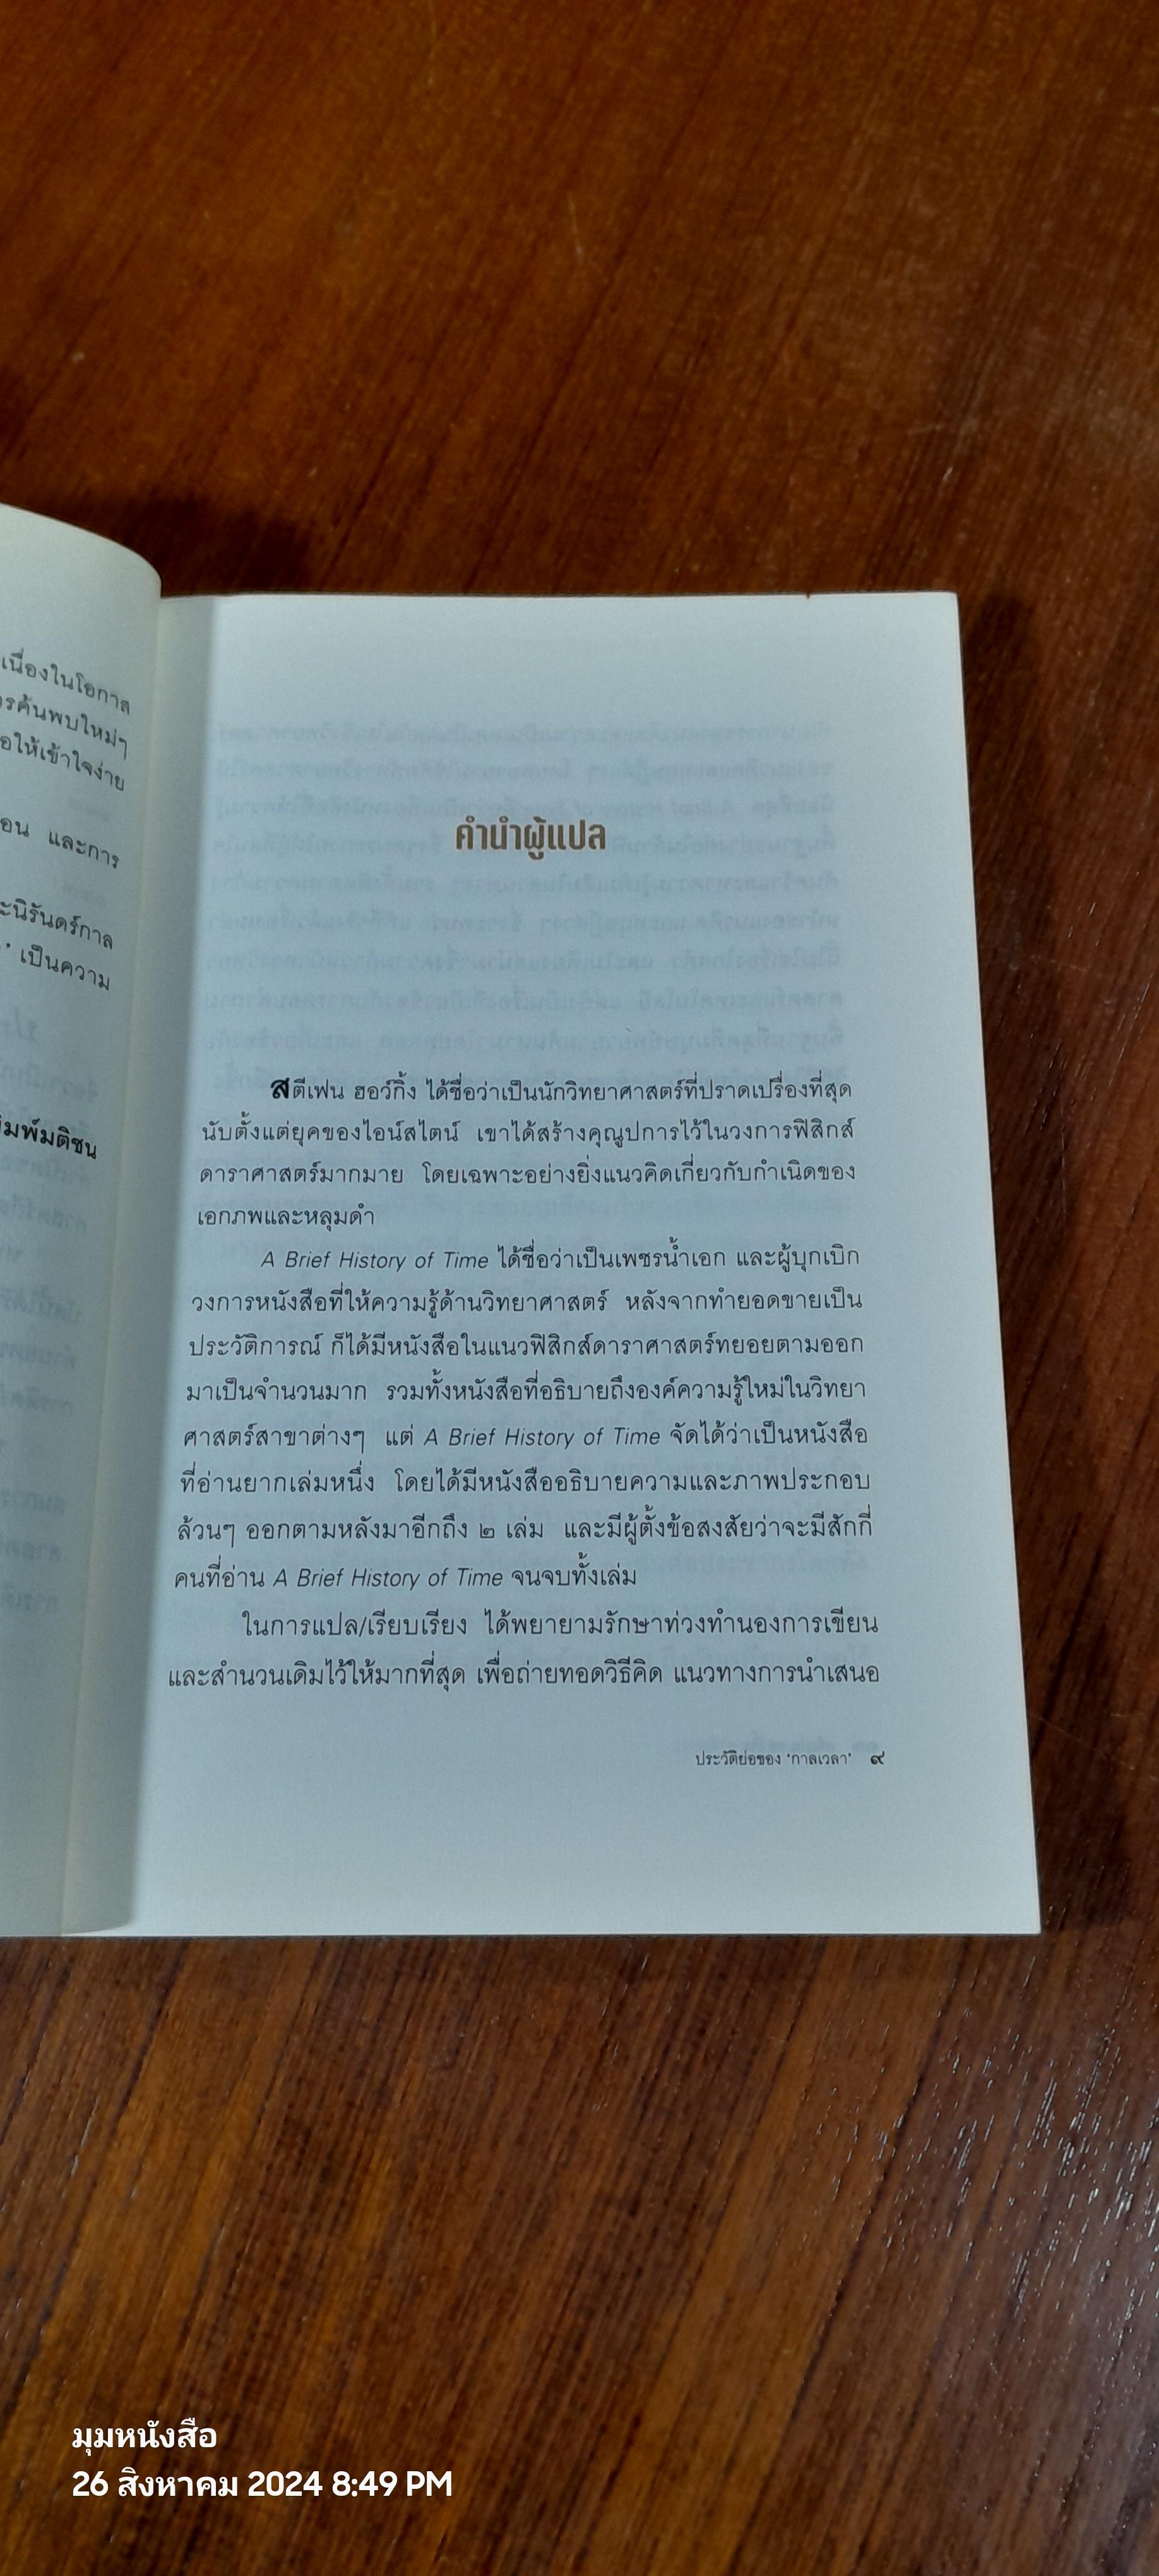 เนื่องในโอกาส
รค้นพบใหม่ๆ
ให้เข้าใจง่าย
และการ
นิรันดร์กาล
เป็นความ
มติชน
คำนำผู้แปล
สตีเฟน ฮอว์กิ้ง ได้ชื่อว่าเป็นนักวิทยาศาสตร์ที่ปราดเปรื่องที่สุด
นับตั้งแต่ยุคของไอน์สไตน์ เขาได้สร้างคุณูปการไว้ในวงการฟิสิกส์
ดาราศาสตร์มากมาย โดยเฉพาะอย่างยิ่งแนวคิดเกี่ยวกับกำเนิดของ
เอกภพและหลุมดำ
A Brief History of Time ได้ชื่อว่าเป็นเพชรน้ำเอก และผู้บุกเบิก
วงการหนังสือที่ให้ความรู้ด้านวิทยาศาสตร์ หลังจากทำยอดขายเป็น
ประวัติการณ์ ก็ได้มีหนังสือในแนวฟิสิกส์ดาราศาสตร์ทยอยตามออก
มาเป็นจำนวนมาก รวมทั้งหนังสือที่อธิบายถึงองค์ความรู้ใหม่ในวิทยา
ศาสตร์สาขาต่างๆ แต่ A Brief History of Time จัดได้ว่าเป็นหนังสือ
ที่อ่านยากเล่มหนึ่ง โดยได้มีหนังสืออธิบายความและภาพประกอบ
ล้วนๆ ออกตามหลังมาอีกถึง ๒ เล่ม และมีผู้ตั้งข้อสงสัยว่าจะมีสักกี่
คนที่อ่าน A Brief History of Time จนจบทั้งเล่ม
ในการแปล/เรียบเรียง ได้พยายามรักษาท่วงทำนองการเขียน
และสำนวนเดิมไว้ให้มากที่สุด เพื่อถ่ายทอดวิธีคิด แนวทางการนำเสนอ
ประวัติย่อของ 'กาลเวลา' ๙
มุมหนังสือ
26 สิงหาคม 2024 8:49 PM